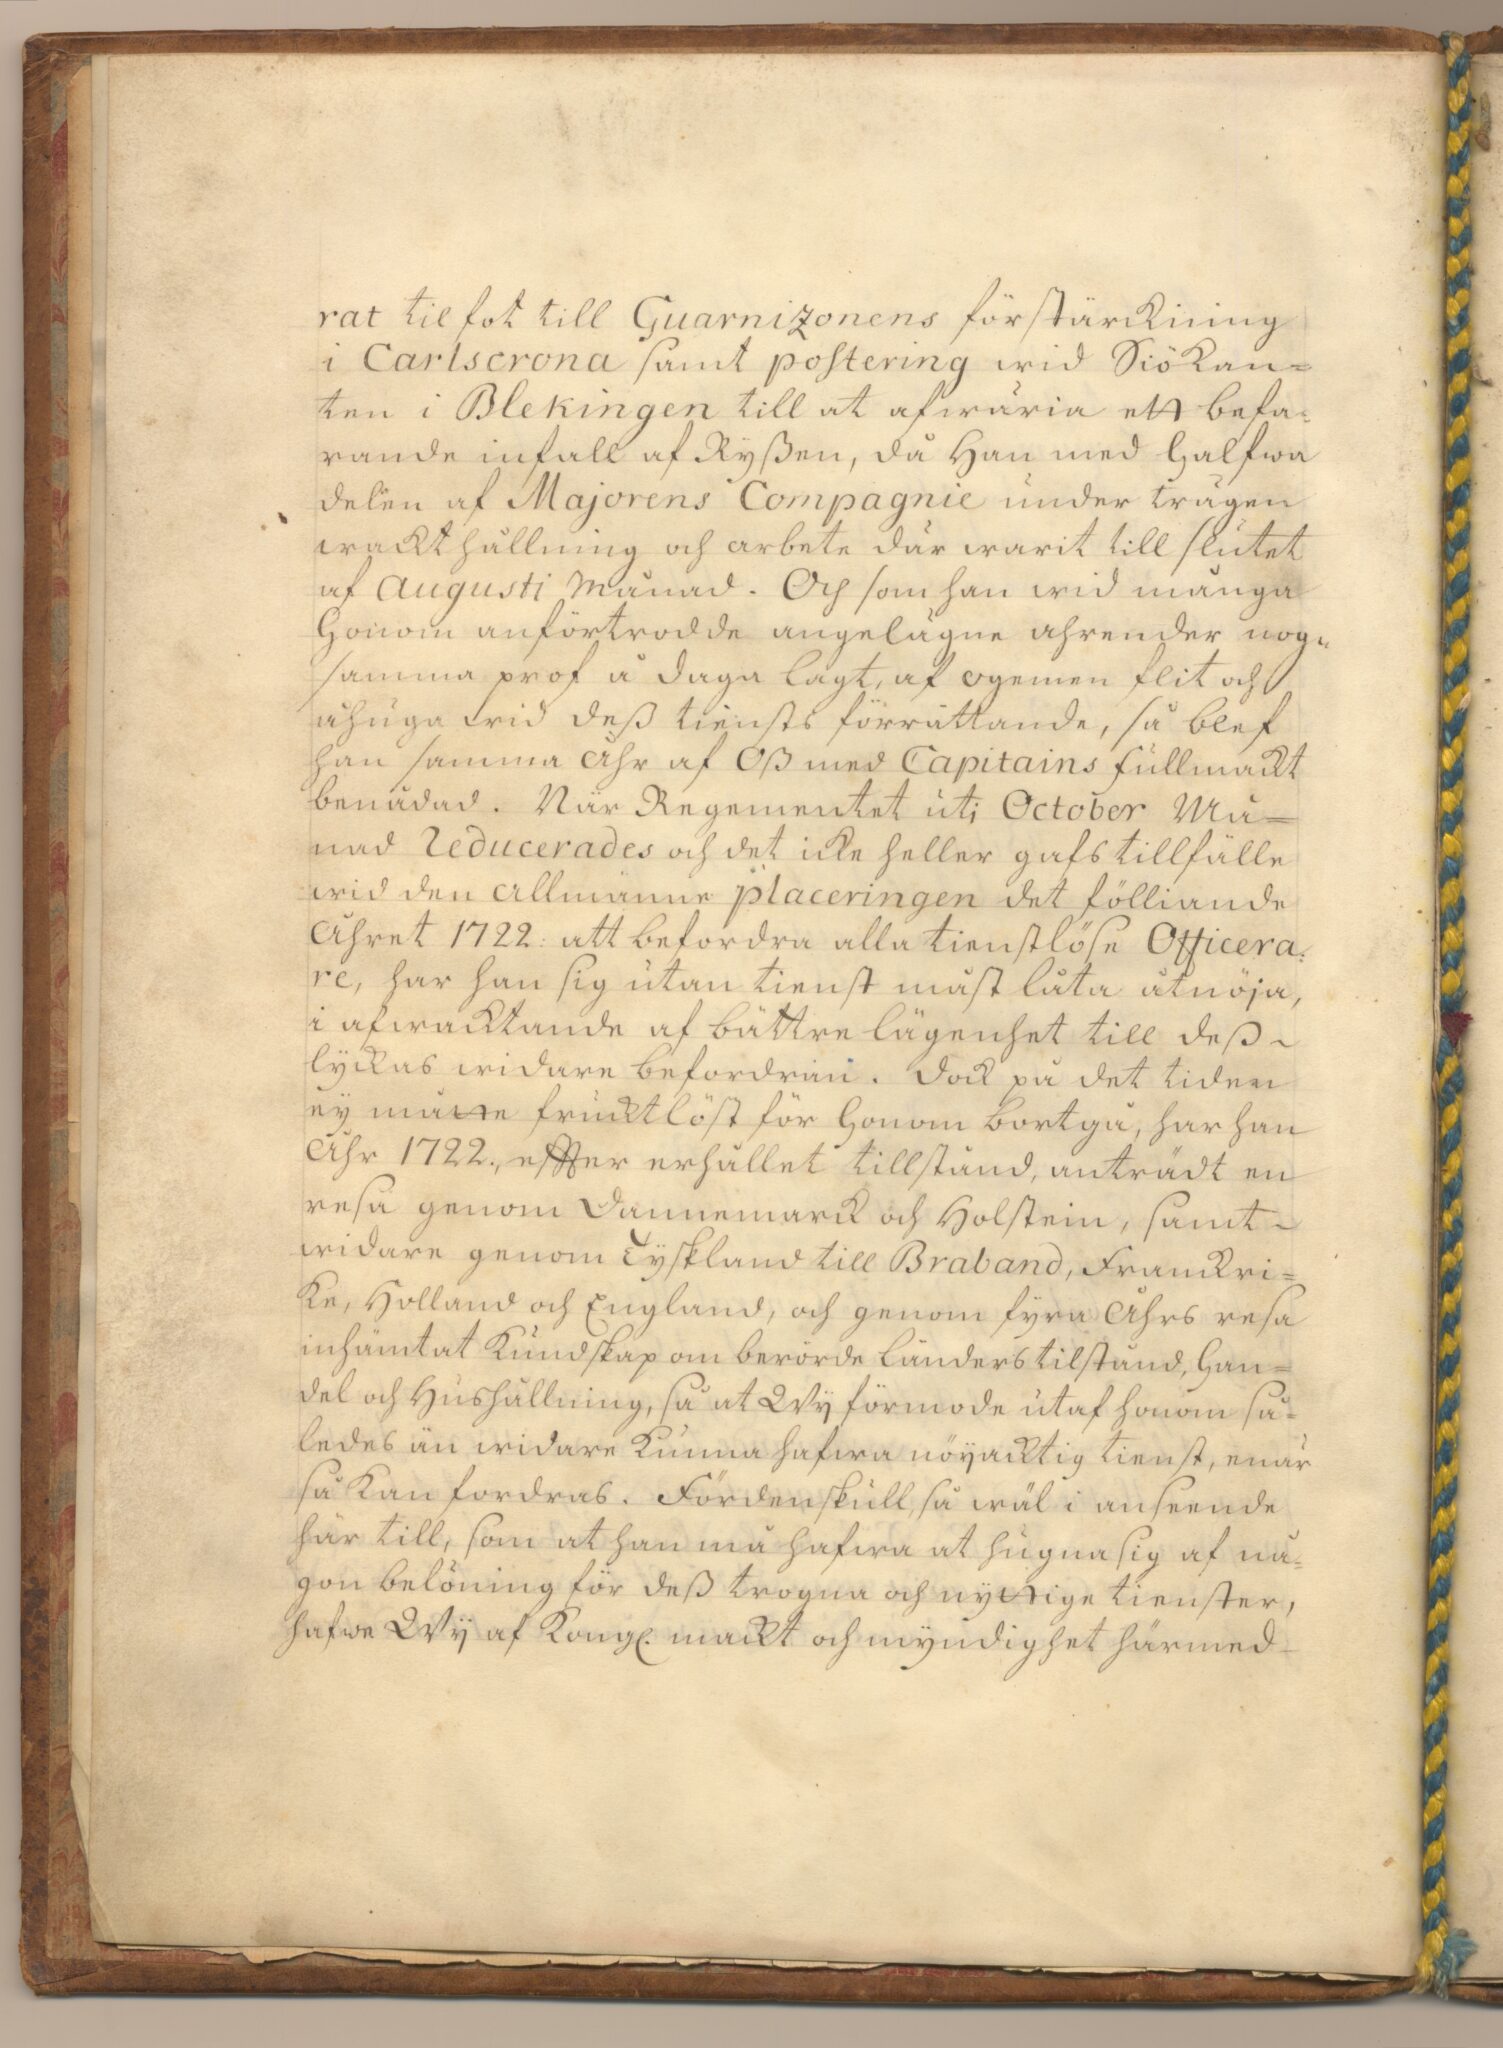 rat til fot till Guarnizonens förstärckning
i Carlscrona samt postering wid Siökan=
ten i Blekingen till at afwäria ett befa=
rande infall af Ryßen, då Han med halfwa
delen af Majorens Compagnie under trägen
wackthållning och arbete där warit till slutet
af Augusti Månad. Och som han wid många
Honom anförtrodde angelägne ahrender nog=
samma prof å daga lagt, af ogemen flit och
åhuga wid deß tiensts förrättande, så blef
han samma Åhr af Oß med Capitains fullmackt
benådad. När Regementet uti October Må=
nad Reducerades och det icke heller gafs tillfälle
wid den allmänne placeringen det fölliande
Åhret 1722: att befordra alla tienstlöse Officera=
re, har han sig utan tienst måst låta åtnöja,
i afwacktande af bättre lägenhet till deß
lyckas widare befordran. Dock på det tiden
ey måtte fruktlöst för honom bortgå, har han
Åhr 1722., efter erhållet tillstånd, anträdt en
resa genom Dannemarck och Holstein, samt
widare genom Tyskland till Braband, Franckri=
ke, Holland och England, och genom fyra Åhrs resa
inhämtat Kundskap om berörde länders tilstånd, Han=
del och Hushållning, så at Wÿ förmode utaf honom så=
ledes än widare kunna hafwa nöyacktig tienst, enär
så kan fordras. Fördenskull, så wäl i anseende
här till, som at han må hafwa at hugna sig af nå=
gon belöning för deß trogna och nyttige tienster,
hafwe Wÿ af Kongl. mackt och myndighet härmed